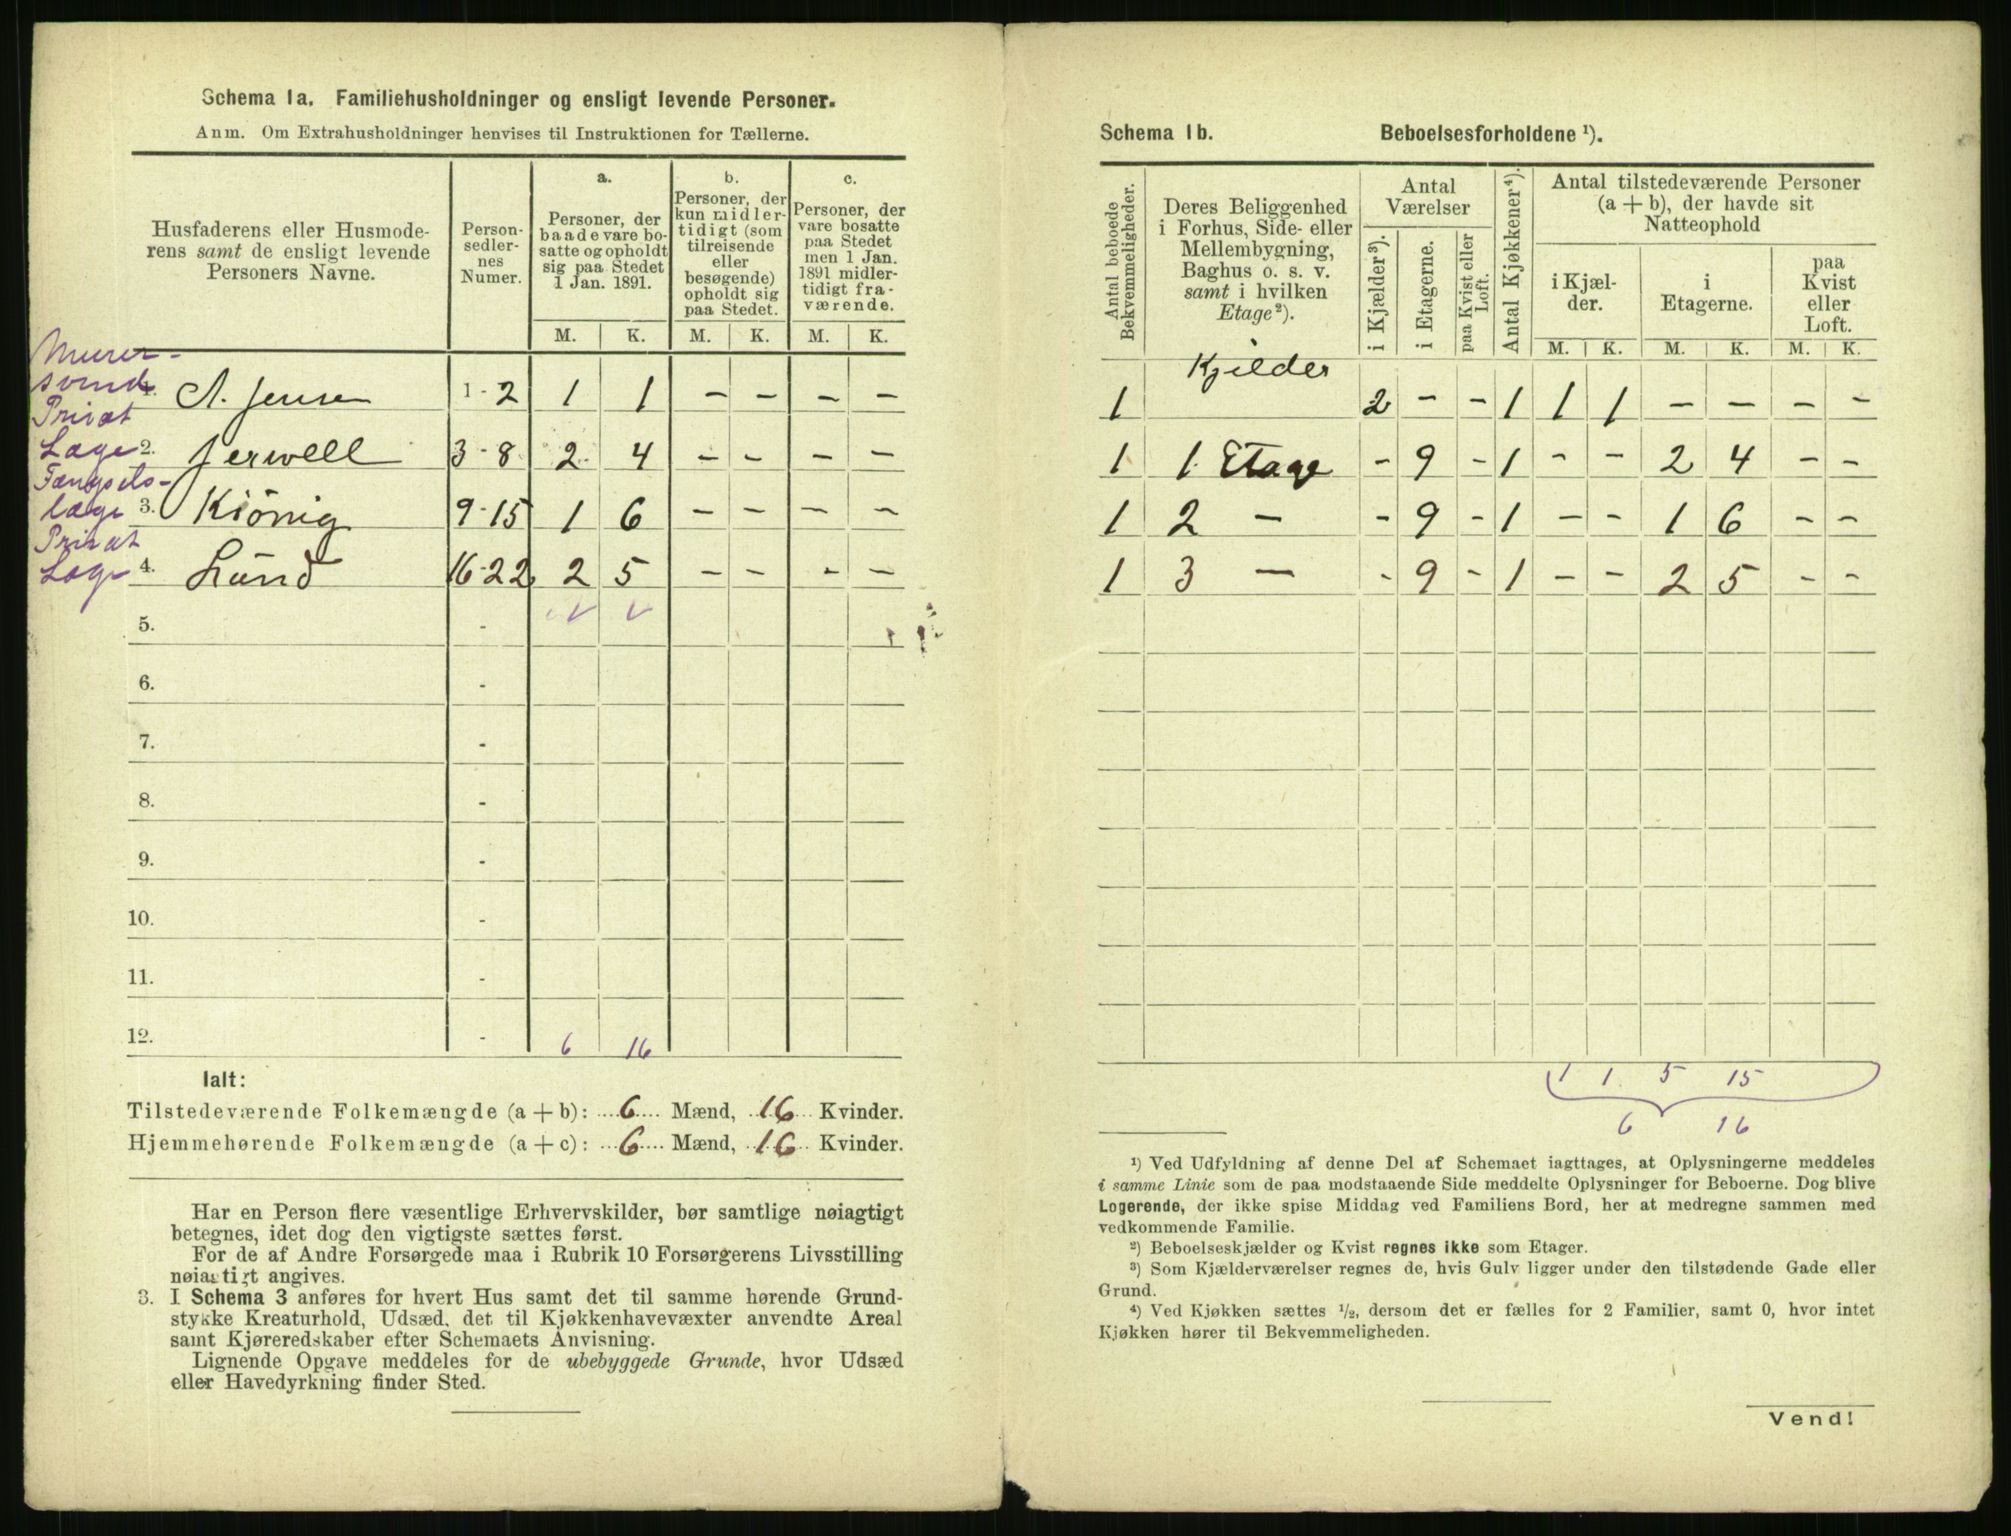 Schema 1a. Familiehusholdninger og ensligt levende Personer.
Anm. Om Extrahusholdninger henvises til Instruktionen for Tællerne.
Husfaderens eller Husmoderens samt de ensligt levende Personers Navne.
Personsedlernes Numer.
a.
Personer, der baade vare bosatte og opholdt sig paa Stedet 1 Jan. 1891.
b.
Personer, der kun midlertidigt (som tilreisende eller besøgende) opholdt sig paa Stedet.
c.
Personer, der vare bosatte paa Stedet men 1 Jan. 1891 midlertidigt fraværende.
M. K. M. K. M. K.
Murersvend 1. A. Jensen 1-2 1 1 – – – –
Privat Læge 2. Jerwell 3-8 2 4 – – – –
Fængselslæge 3. Kiönig 9-15 1 6 – – – –
Privat Læge 4. Lund 16-22 2 5 – – – –
5. -
6. -
7. -
8. -
9. -
10. -
11. -
12. - 6 16
Ialt:
Tilstedeværende Folkemængde (a + b): 6 Mænd, 16 Kvinder.
Hjemmehørende Folkemængde (a + c): 6 Mænd, 16 Kvinder.
Har en Person flere væsentlige Erhvervskilder, bør samtlige nøiagtigt
betegnes, idet dog den vigtigste sættes først.
For de af Andre Forsørgede maa i Rubrik 10 Forsørgerens Livsstilling
nøiagtigt angives.
3. I Schema 3 anføres for hvert Hus samt det til samme hørende Grund-
stykke Kreaturhold, Udsæd, det til Kjøkkenhavevæxter anvendte Areal
samt Kjøreredskaber efter Schemaets Anvisning.
Lignende Opgave meddeles for de ubebyggede Grunde, hvor Udsæd
eller Havedyrkning finder Sted.
Schema 1b. Beboelsesforholdene ¹).
Antal beboede Bekvemmeligheder.
Deres Beliggenhed i Forhus, Side- eller Mellembygning, Baghus o. s. v. samt i hvilken Etage²).
Antal Værelser
i Kjælder³).
i Etagerne.
paa Kvist eller Loft.
Antal Kjøkkener⁴).
Antal tilstedeværende Personer (a + b), der havde sit Natteophold
i Kjælder.
i Etagerne.
paa Kvist eller Loft.
M. K. M. K. M. K.
1 Kjelder 2 – – 1 1 1 – – – –
1 1. Etage – 9 – 1 – – 2 4 – –
1 2 – – 9 – 1 – – 1 6 – –
1 3 – – 9 – 1 – – 2 5 – –
1 1 5 15
6 16
¹) Ved Udfyldning af denne Del af Schemaet iagttages, at Oplysningerne meddeles
i samme Linie som de paa modstaaende Side meddelte Oplysninger for Beboerne. Dog blive
Logerende, der ikke spise Middag ved Familiens Bord, her at medregne sammen med
vedkommende Familie.
²) Beboelseskjælder og Kvist regnes ikke som Etager.
³) Som Kjælderværelser regnes de, hvis Gulv ligger under den tilstødende Gade eller
Grund.
⁴) Ved Kjøkken sættes ¹/₂, dersom det er fælles for 2 Familier, samt 0, hvor intet
Kjøkken hører til Bekvemmeligheden.
Vend!